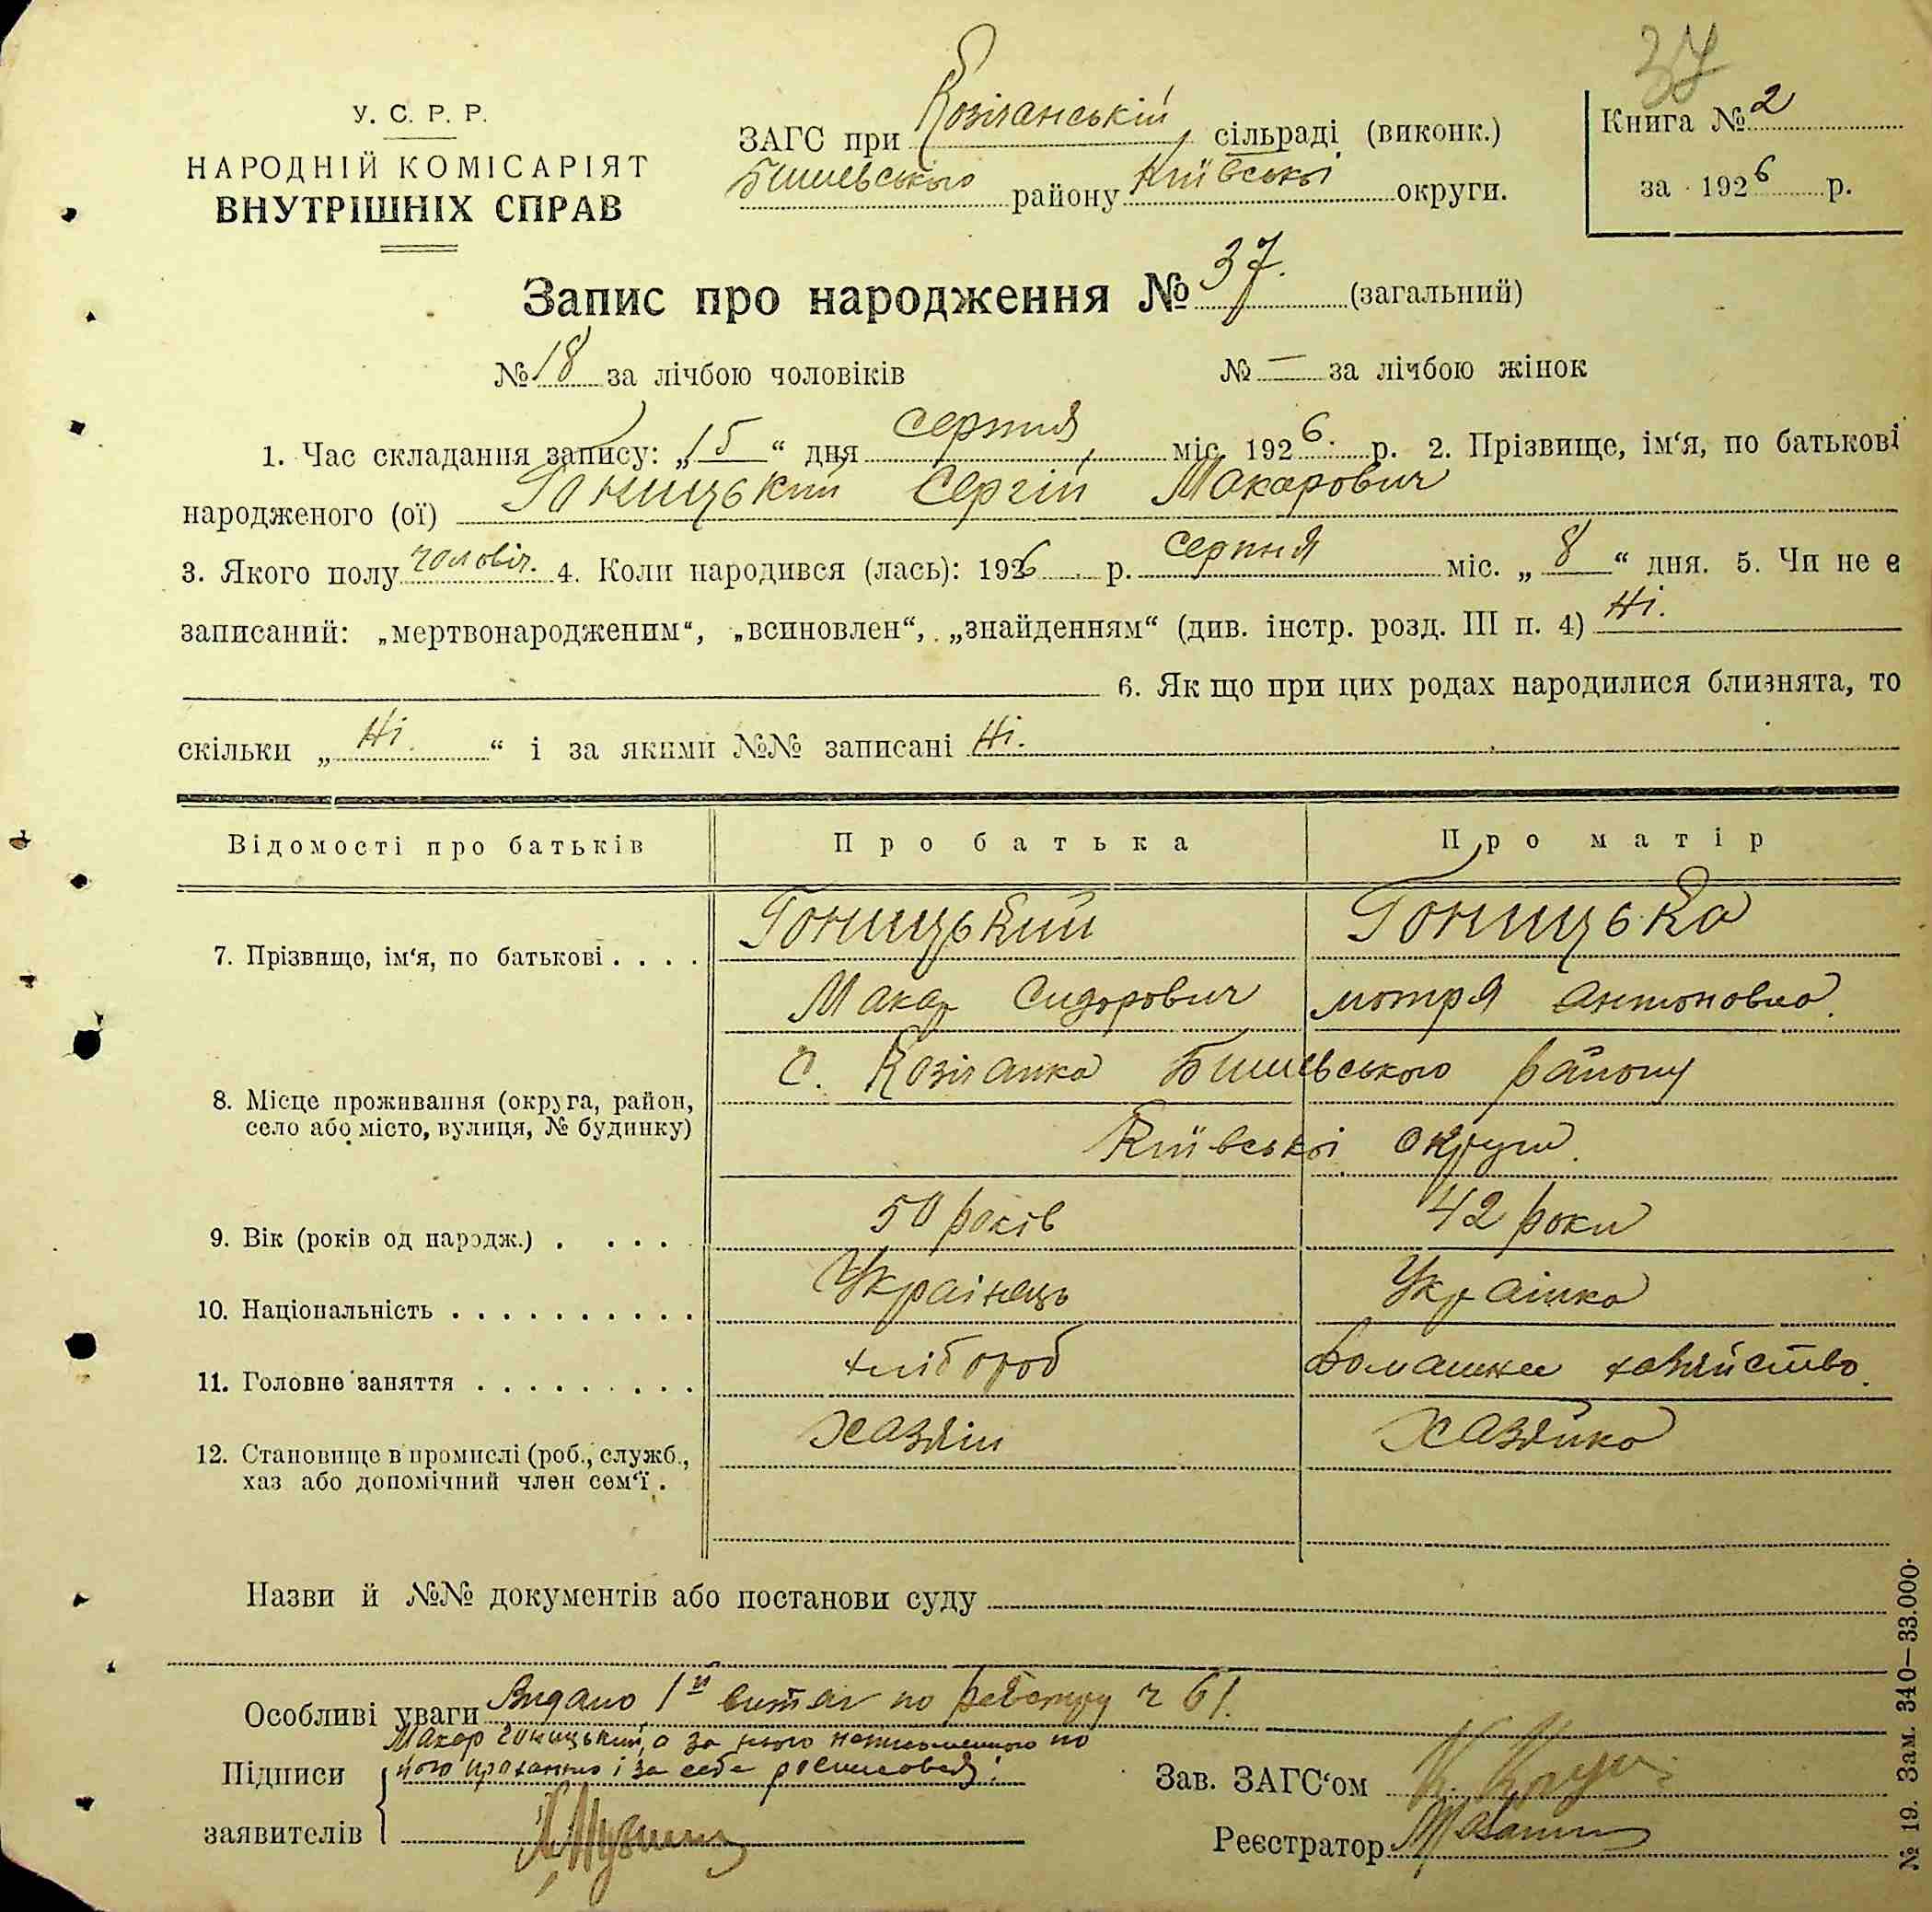 37
У. С. Р. Р.
НАРОДНІЙ КОМІСАРІЯТ
ВНУТРІШНІХ СПРАВ
ЗАГС при Козічанській сільраді (виконк.)
Бишевського району Київської округи.
Книга № 2
за 1926 р.
Запис про народження № 37. (загальний)
№ 18 за лічбою чоловіків № — за лічбою жінок
1. Час складання запису: „15“ дня серпня міс. 1926. р. 2. Прізвище, ім‘я, по батькові
народженого (ої) Гоницький Сергій Макарович
3. Якого полу чоловіч. 4. Коли народився (лась): 1926 р. серпня міс. „8“ дня. 5. Чи не є
записаний: „мертвонародженим“, „всиновлен“, „знайденням“ (див. інстр. розд. III п. 4) Ні.
6. Як що при цих родах народилися близнята, то
скільки „Ні.“ і за якими №№ записані Ні.
Відомості про батьків Про батька Про матір
7. Прізвище, ім‘я, по батькові . . . . Гоницький Гоницька
Макар Сидорович мотря антоновна.
8. Місце проживання (округа, район, с. Козічанка Бишевського району
село або місто, вулиця, № будинку) Київської округи.
9. Вік (років од народж.) . . . . 50 років 42 роки
10. Національність . . . . . . . . . . Українець Українка
11. Головне заняття . . . . . . . . . хлібороб Домашнее хазяйство.
12. Становище в промислі (роб., служб., Хазяїн Хазяйка
хаз або допомічний член сем‘ї .
Назви й №№ документів або постанови суду
Особливі уваги Видано 1й витяг по реєстру ч 61.
Макар Гоницький, а за нього неписьменного по
Підписи його проханню і за себе росписовсь:
заявителів
Зав. ЗАГС‘ом
Реєстратор
№ 19. Зам. 340—33.000.